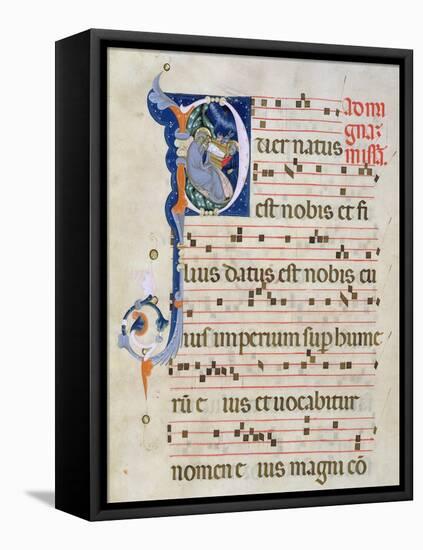 Puer natus
ad mi
gnaz
missã.
est nobis et fi
lius datus est nobis cu
ius imperium sup hume
rũ e ius et uocabitur
nomen e ius magni cõ